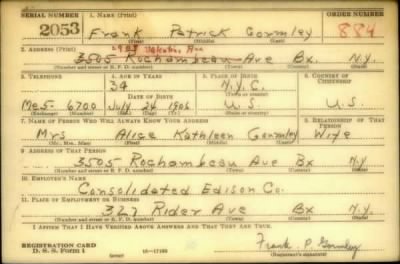 SERIAL NUMBER 1. NAME (Print) ORDER NUMBER
2053 Frank Patrick Gormley 884
(First) (Middle) (Last)
2. ADDRESS (Print) Valentine Ave
3505 Rochambeau Ave Bx. N.Y.
(Number and street or R. F. D. number) (Town) (County) (State)
3. TELEPHONE 4. AGE IN YEARS 5. PLACE OF BIRTH 6. COUNTRY OF CITIZENSHIP
34 N.Y.C.
DATE OF BIRTH (Town or county)
Me5- 6700 July 24 1906 U.S. U.S.
(Exchange) (Number) (Mo.) (Day) (Yr.) (State or country)
7. NAME OF PERSON WHO WILL ALWAYS KNOW YOUR ADDRESS 8. RELATIONSHIP OF THAT PERSON
Mrs Alice Kathleen Gormley Wife
(Mr., Mrs., Miss) (First) (Middle) (Last)
9. ADDRESS OF THAT PERSON
3505 Rochambeau Ave Bx N.Y
(Number and street or R. F. D. number) (Town) (County) (State)
10. EMPLOYER'S NAME
Consolidated Edison Co.
11. PLACE OF EMPLOYMENT OR BUSINESS
327 Rider Ave Bx N.Y.
(Number and street or R. F. D. number) (Town) (County) (State)
I AFFIRM THAT I HAVE VERIFIED ABOVE ANSWERS AND THAT THEY ARE TRUE.
REGISTRATION CARD
D. S. S. Form 1 16-17105 Frank P Gormley